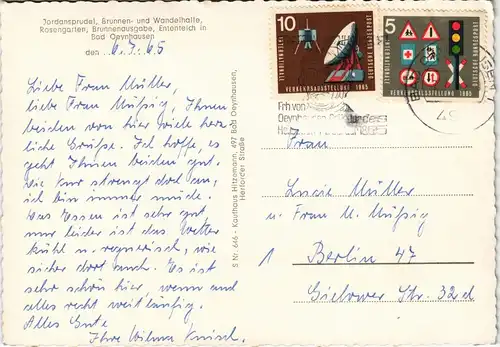 Jordansprudel, Brunnen- und Wandelhalle,
Rosengarten, Brunnenausgabe, Ententeich in
Bad Oeynhausen
den 6.7.65
Liebe Frau Müller,
liebe Frau Mußig, Ihnen
beiden von hier viele herz
liche Grüße. Ich hoffe, es
geht Ihnen beiden gut.
Die Kur strengt doch an,
ich bin immer müde.
Das Essen ist sehr gut,
nur leider ist das Wetter
kühl u. regnerisch, wie
sicher dort auch. Es ist
sehr schön hier, wenn auch
alles recht weitläufig.
Alles Gute
Ihre Wilma
S Nr. 646 - Kaufhaus Hitzemann, 497 Bad Oeynhausen,
Herforder Straße
10
DEUTSCHE BUNDESPOST
VERKEHRSAUSSTELLUNG 1965
5
DEUTSCHE BUNDESPOST
VERKEHRSAUSSTELLUNG 1965
Frau
Lucie Müller
u. Frau M. Mußig
1 Berlin 47
Gielower Str. 32d